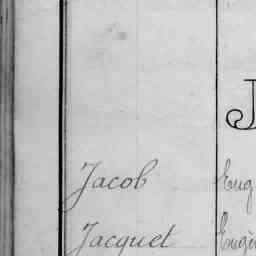 J
Jacob Eug
Jacquet Eugèn